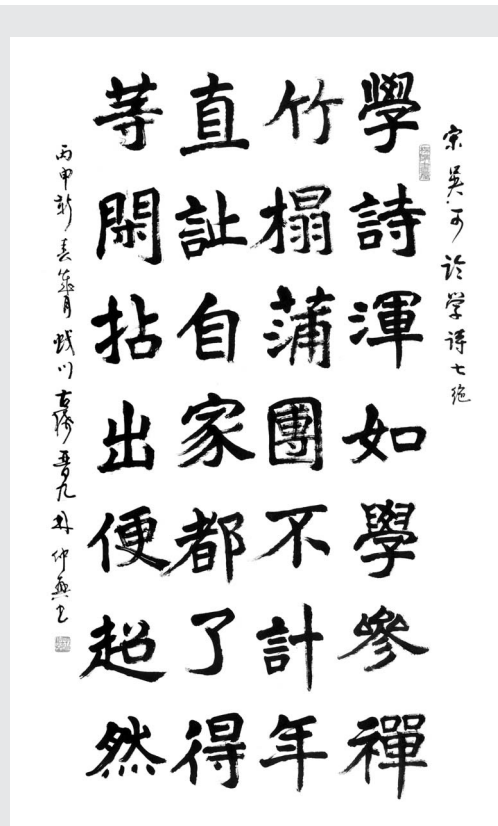 宗吴可论学诗七绝
學詩渾如學參禪
竹榻蒲團不計年
直訨自家都了得
等閑拈出便超然
丙申新春
仲燕